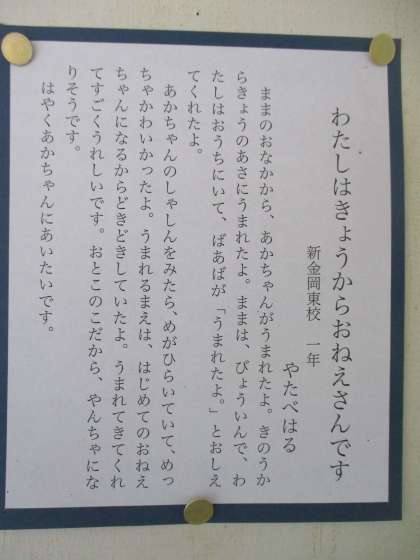 わたしはきょうからおねえさんです
新金岡東校　一年
やたべはる
ままのおなかから、あかちゃんがうまれたよ。きのうか
らきょうのあさにうまれたよ。ままは、びょういんで、わ
たしはおうちにいて、ばあばが「うまれたよ。」とおしえ
てくれたよ。
あかちゃんのしゃしんをみたら、めがひらいていて、めっ
ちゃかわいかったよ。うまれるまえは、はじめてのおねえ
ちゃんになるからどきどきしていたよ。うまれてきてくれ
てすごくうれしいです。おとこのこだから、やんちゃにな
りそうです。
はやくあかちゃんにあいたいです。